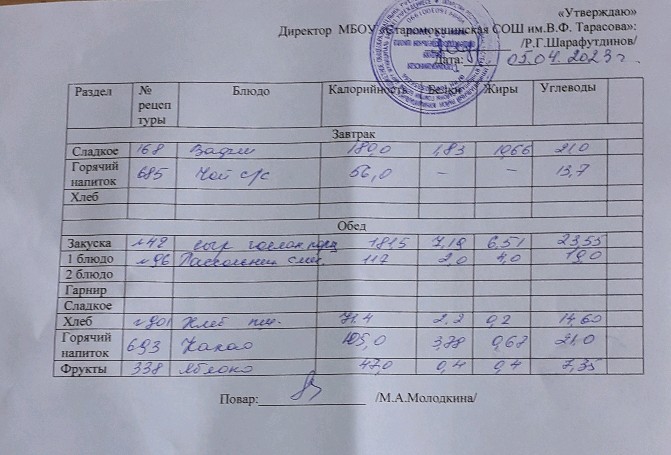 «Утверждаю»
Директор МБОУ «Старомокшинская СОШ им.В.Ф. Тарасова»:
/Р.Г.Шарафутдинов/
Дата: 05.04.2023 г.
Раздел № рецептуры Блюдо Калорийность Белки Жиры Углеводы
Завтрак
Сладкое 168 Вафли 180,0 1,83 10,66 21,0
Горячий напиток 685 Чай с/с 56,0 – – 13,7
Хлеб
Обед
Закуска №48 сыр 181,5 7,19 6,51 23,55
1 блюдо №96 Рассольник 117 2,0 4,0 19,0
2 блюдо
Гарнир
Сладкое
Хлеб Хлеб пш. 71,4 2,2 0,2 14,60
Горячий напиток 693 Какао 105,0 3,78 0,68 21,0
Фрукты 338 Яблоко 47,0 0,4 0,4 7,35
Повар: /М.А.Молодкина/